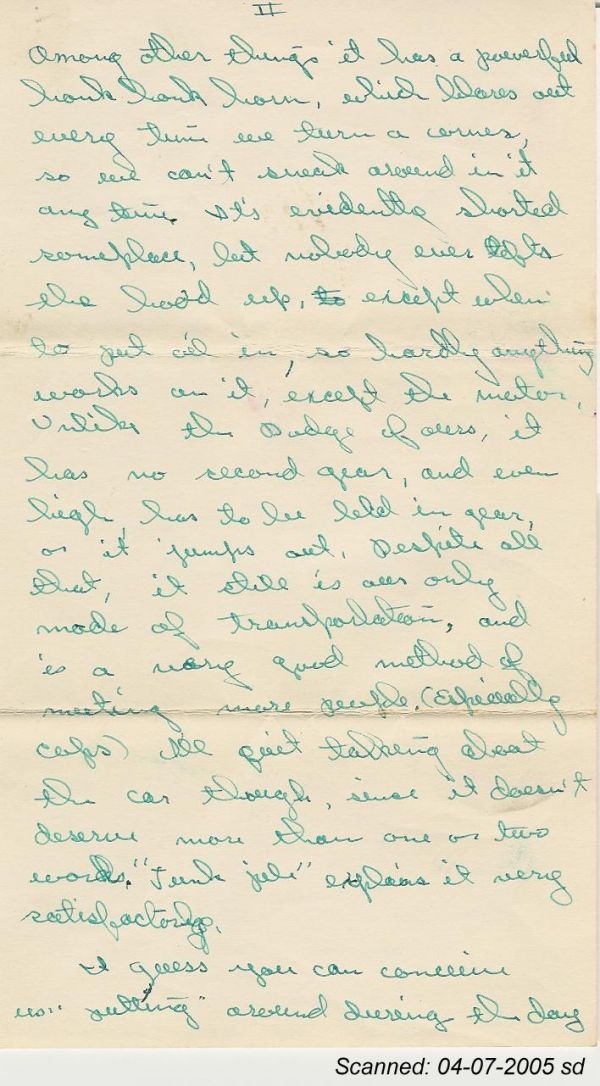 II
Among other things it has a powerful
honk honk horn, which blares out
every time we turn a corner,
so we can't sneak around in it
any time. It's evidently shorted
someplace, but nobody ever lifts
the hood up, to except when
to put oil in, so hardly anything
works on it, except the motor.
Unlike the Dodge of ours, it
has no second gear, and even
high, has to be held in gear,
or it jumps out. Despite all
that, it still is our only
mode of transportation, and
is a very good method of
meeting more people. (Especially
cops) I'll quit talking about
the car though, since it doesn't
deserve more than one or two
words. "Junk pile" explains it very
satisfactorily.
I guess you can conceive
us "putting" around during the day
Scanned: 04-07-2005 sd